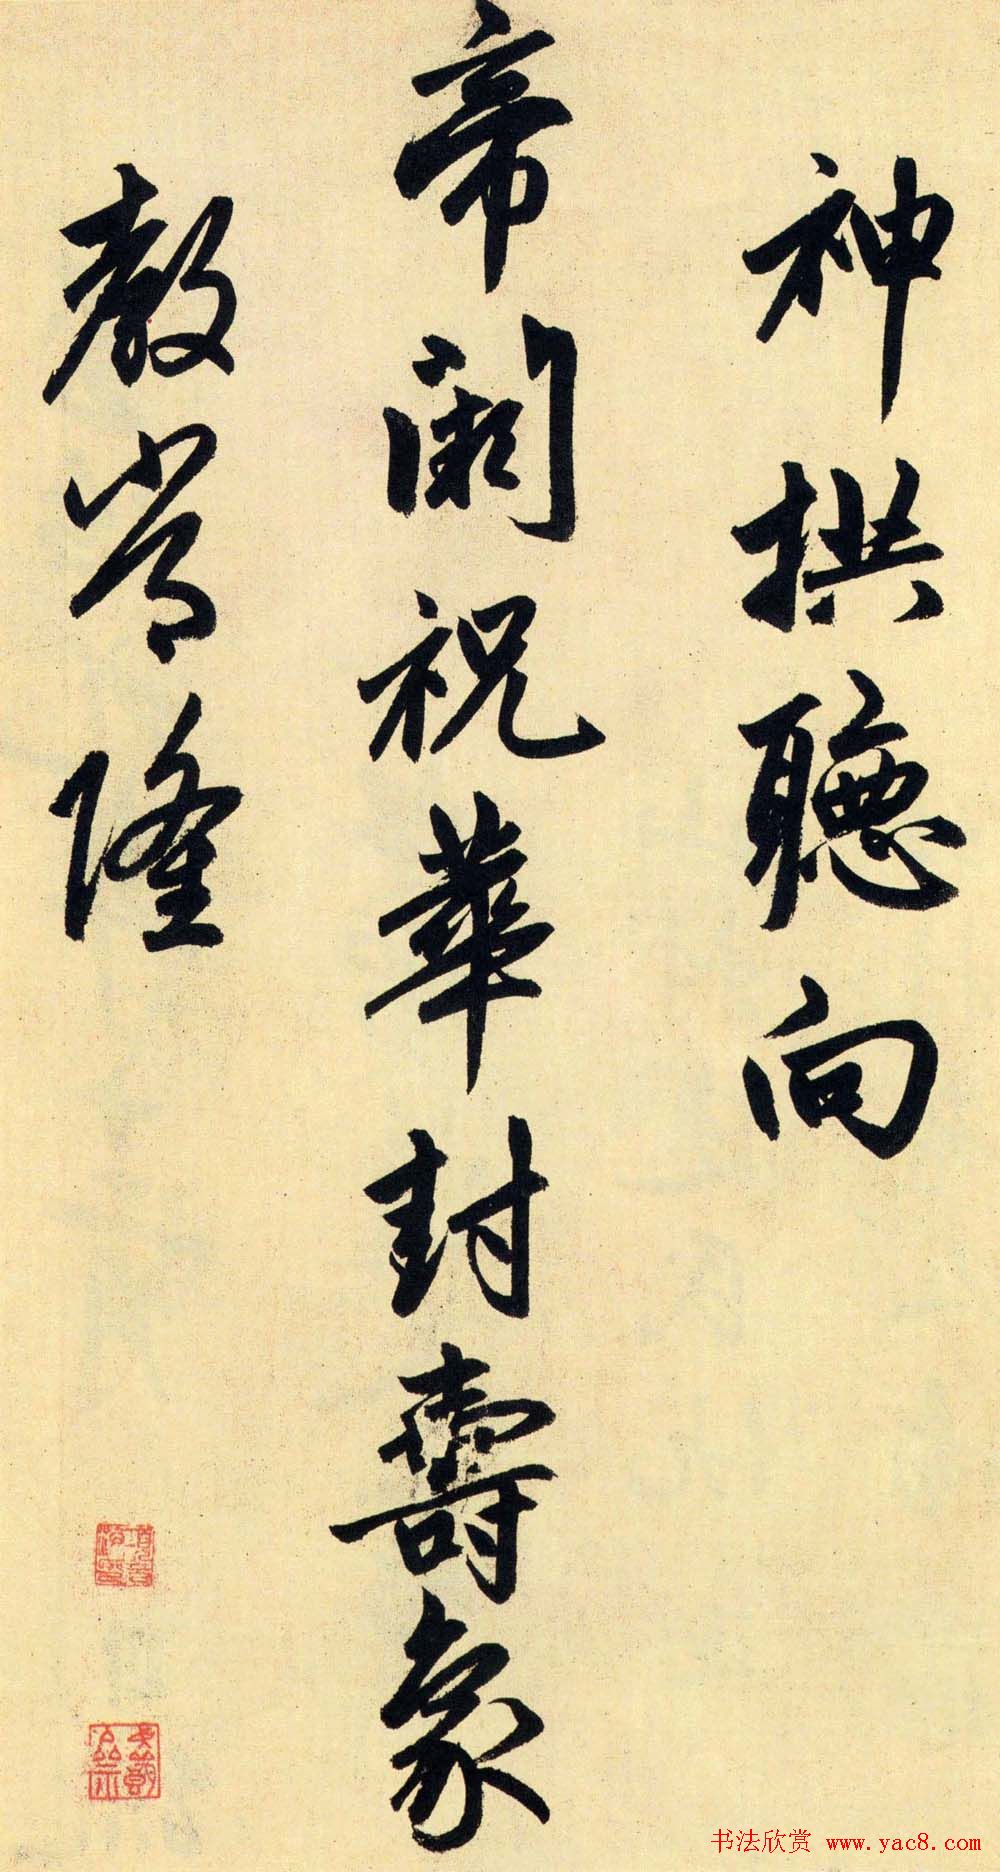 神拱聽向
帝闕祝華封壽象
教常隆
书法欣赏 www.yac8.com